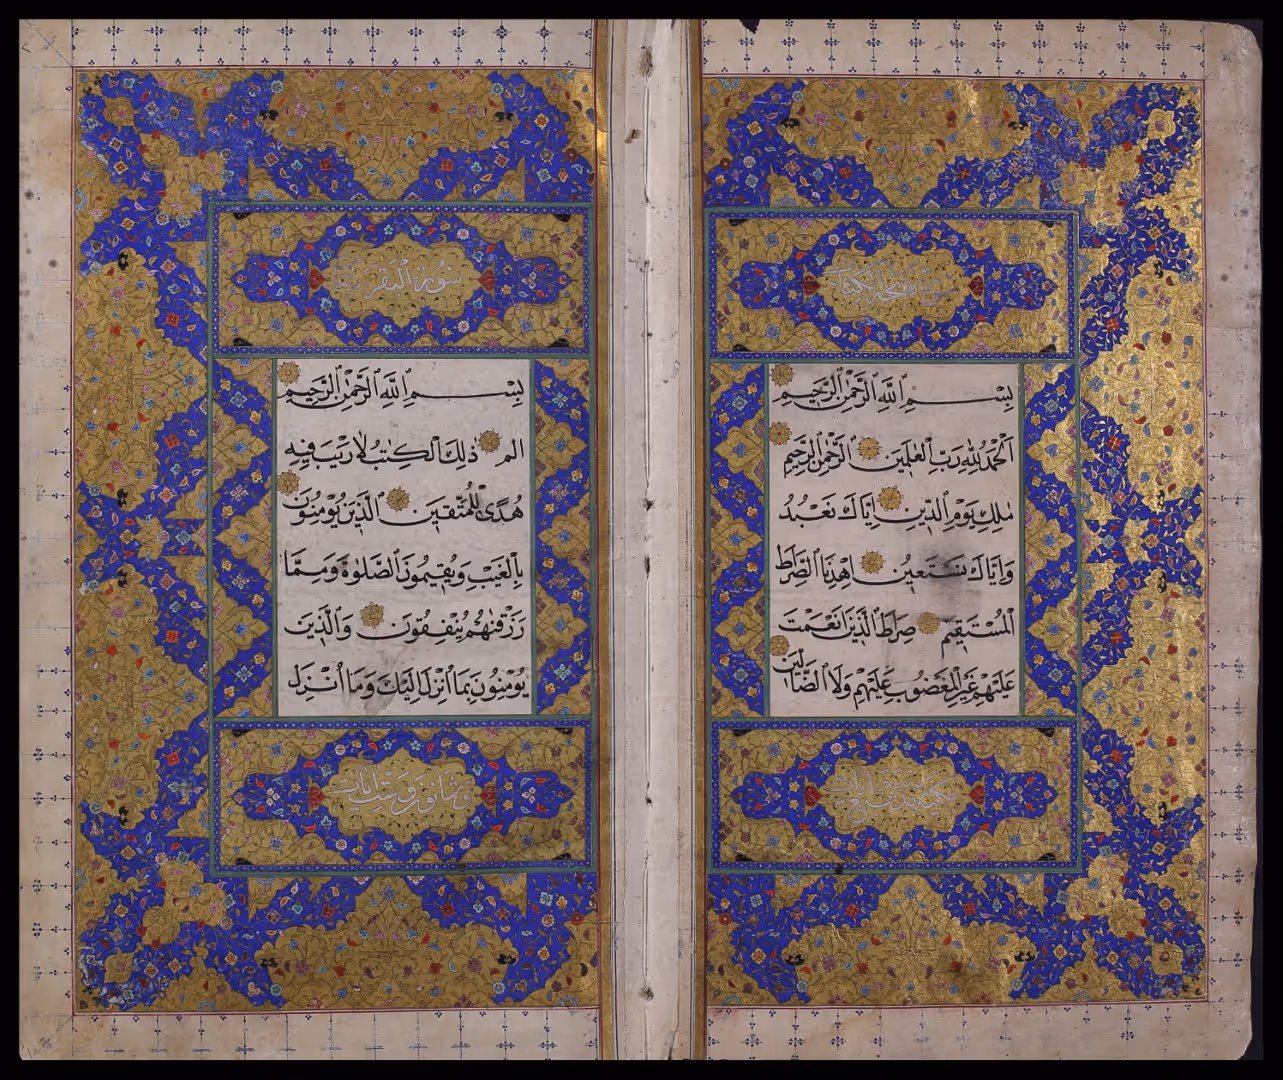 سورة فاتحة الكتاب
بِسْمِ اللَّهِ الرَّحْمٰنِ الرَّحِيمِ
اَلْحَمْدُ لِلّٰهِ رَبِّ الْعٰلَمِينَ الرَّحْمٰنِ الرَّحِيمِ
مٰلِكِ يَوْمِ الدِّينِ اِيَّاكَ نَعْبُدُ
وَاِيَّاكَ نَسْتَعِينُ اِهْدِنَا الصِّرَاطَ
الْمُسْتَقِيمَ صِرَاطَ الَّذِينَ اَنْعَمْتَ
عَلَيْهِمْ غَيْرِ الْمَغْضُوبِ عَلَيْهِمْ وَلَا الضَّالِّينَ
سورة البقرة
بِسْمِ اللَّهِ الرَّحْمٰنِ الرَّحِيمِ
الم ذٰلِكَ الْكِتٰبُ لَا رَيْبَ فِيهِ
هُدًى لِلْمُتَّقِينَ الَّذِينَ يُؤْمِنُونَ
بِالْغَيْبِ وَيُقِيمُونَ الصَّلٰوةَ وَمِمَّا
رَزَقْنٰهُمْ يُنْفِقُونَ وَالَّذِينَ
يُؤْمِنُونَ بِمَا اُنْزِلَ اِلَيْكَ وَمَا اُنْزِلَ